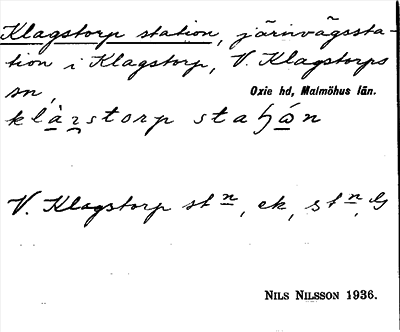 Klagstorp station, järnvägssta-
tion i Klagstorp, V. Klagstorps
sn, Oxie hd, Malmöhus län.
V. Klagstorp stn, ek, stn,
NILS NILSSON 1936.